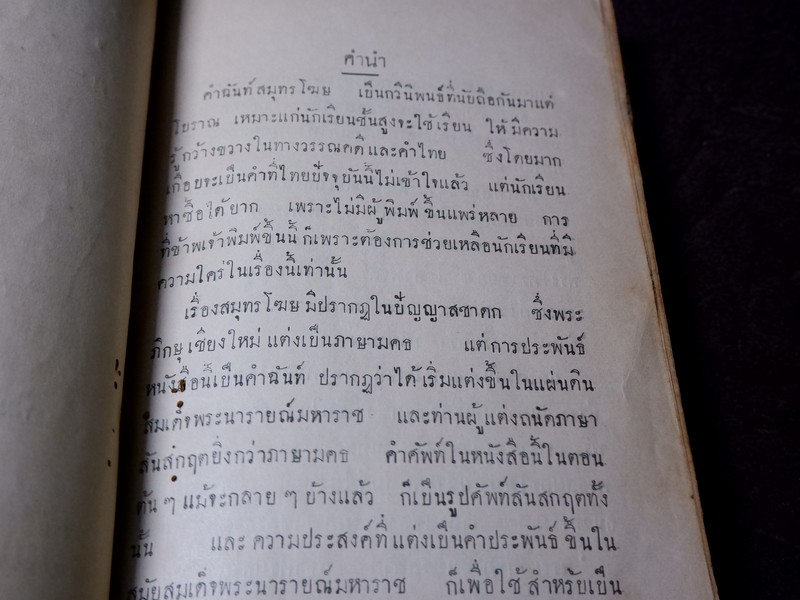 คำนำ
คำฉันท์สมุทรโฆษ เป็นกวินิพนธ์ที่นับถือกันมาแต่
โบราณ เหมาะแก่นักเรียนชั้นสูงจะใช้เรียน ให้มีความ
รู้กว้างขวางในทางวรรณคดีและคำไทย ซึ่งโดยมาก
เกือบจะเป็นคำที่ไทยปัจจุบันนี้ไม่เข้าใจแล้ว แต่นักเรียน
หาซื้อได้ยาก เพราะไม่มีผู้พิมพ์ขึ้นแพร่หลาย การ
ที่ข้าพเจ้าพิมพ์ขึ้นนี้ ก็เพราะต้องการช่วยเหลือนักเรียนที่มี
ความใคร่ในเรื่องนี้เท่านั้น
เรื่องสมุทรโฆษ มีปรากฏในปัญญาสชาดก ซึ่งพระ
ภิกษุเชียงใหม่ แต่งเป็นภาษามคธ แต่การประพันธ์
หนังสือนี้เป็นคำฉันท์ ปรากฏว่าได้เริ่มแต่งขึ้นในแผ่นดิน
สมเด็จพระนารายณ์มหาราช และท่านผู้แต่งถนัดภาษา
สันสกฤตยิ่งกว่าภาษามคธ คำศัพท์ในหนังสือนี้ในตอน
ต้น ๆ แม้จะกลาย ๆ บ้างแล้ว ก็เป็นรูปศัพท์สันสกฤตทั้ง
นั้น และ ความประสงค์ที่แต่งเป็นคำประพันธ์ ขึ้นใน
สมัยสมเด็จพระนารายณ์มหาราช ก็เพื่อใช้สำหรับเป็น